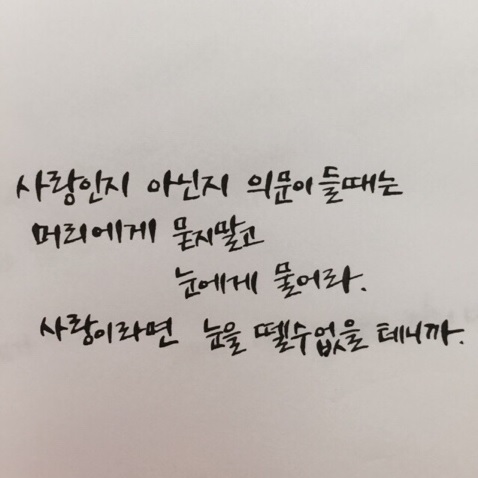 사랑인지 아닌지 의문이 들때는
머리에게 묻지말고
눈에게 물어라.
사랑이라면 눈을 뗄수없을 테니까.